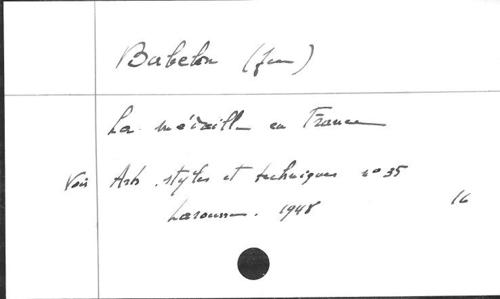 Babelon (Jean)
La médaille en France
Voir Arts, styles et techniques n° 35
Larousse. 1948 16